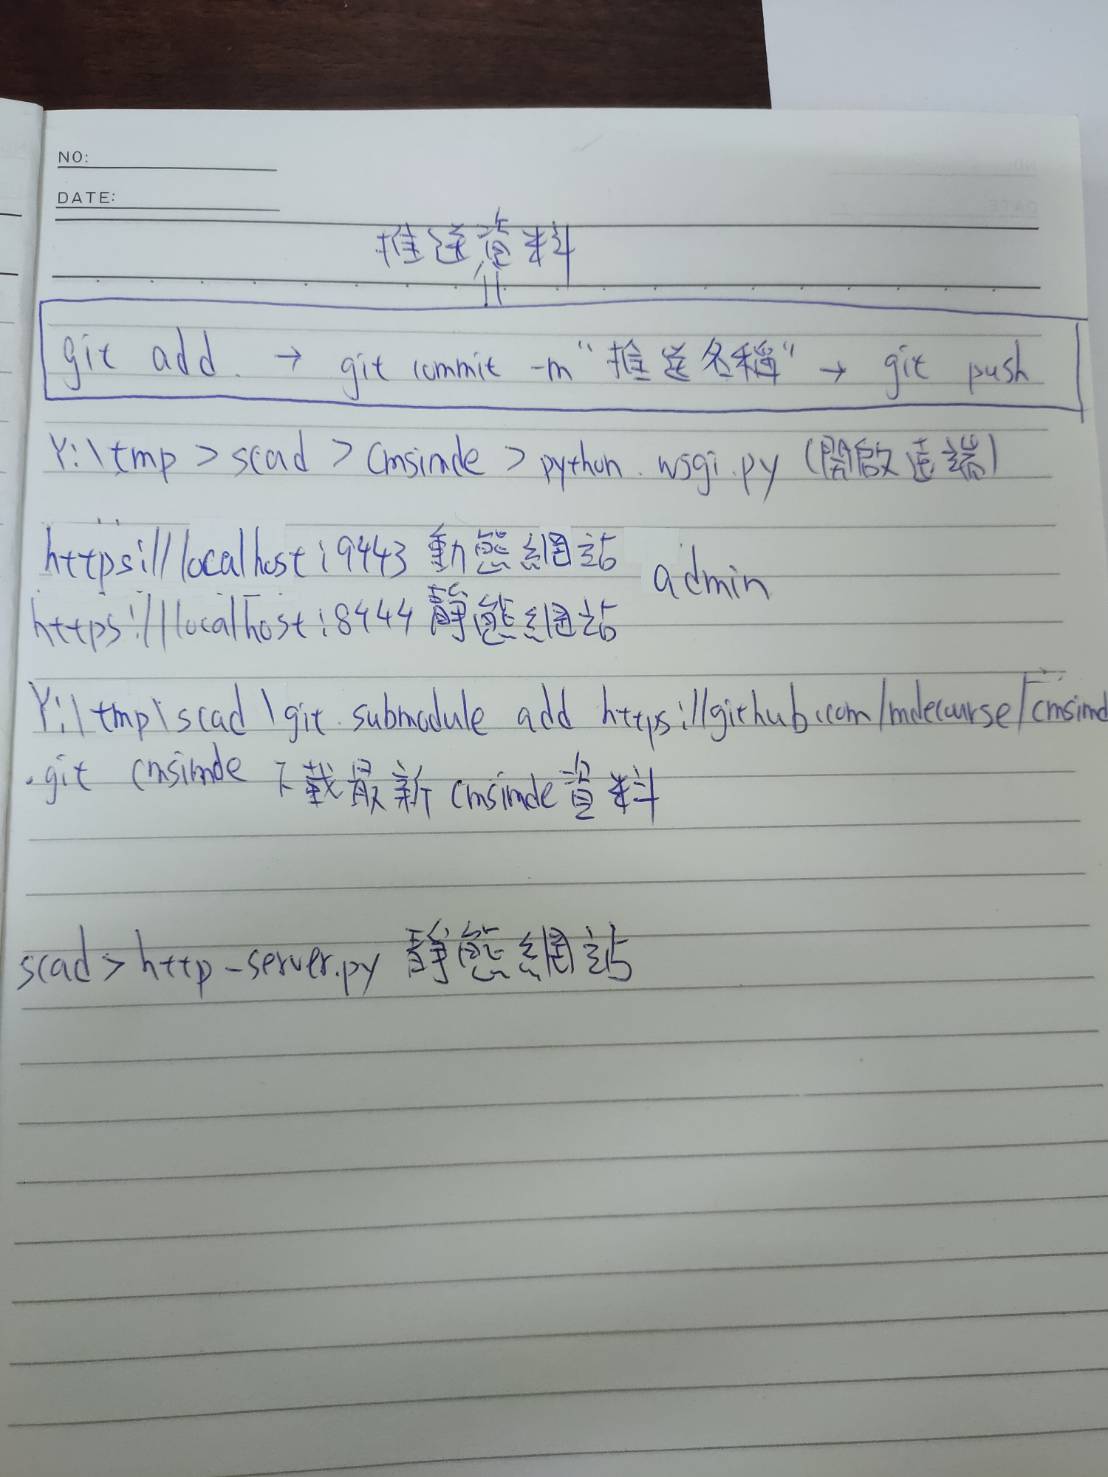 NO:
DATE:
推送資料
git add . → git commit -m "推送名稱" → git push
Y:\tmp > scad > cmsimde > python . wsgi.py (開啟遠端)
https://localhost:9443 動態網站 admin
https://localhost:8444 靜態網站
Y:\tmp\scad\git submodule add https://github.com/mdecourse/cmsimd
.git cmsimde 下載最新 cmsimde 資料
scad > http-server.py 靜態網站